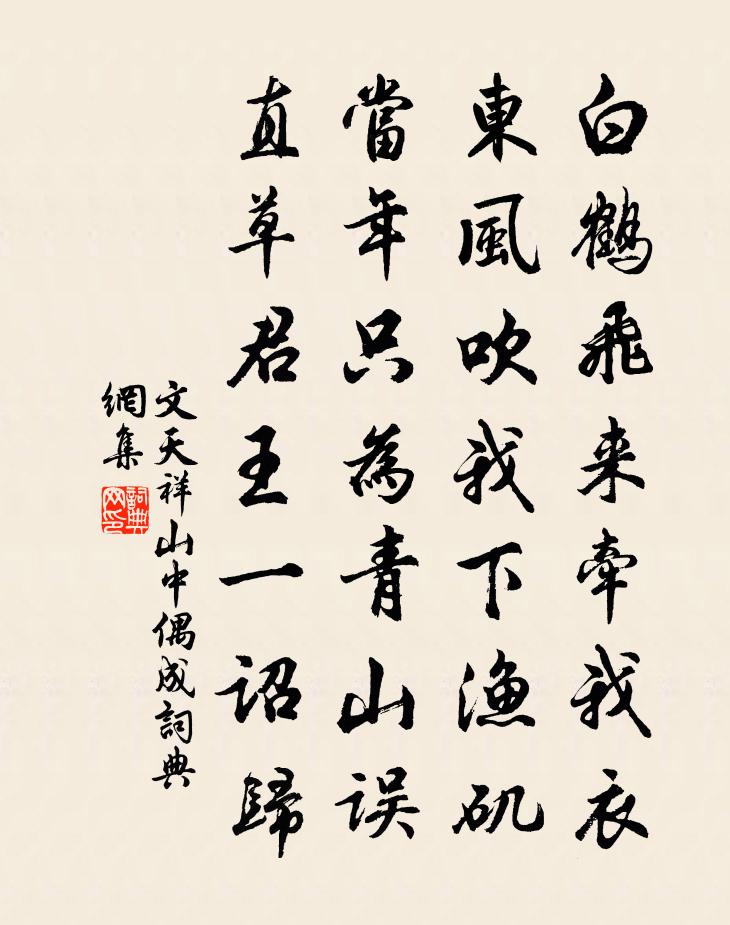 白鶴飛来牽我衣
東風吹我下漁矶
當年只為青山误
直草君王一诏歸
文天祥山中偶成詞典
網集
詞典
网印